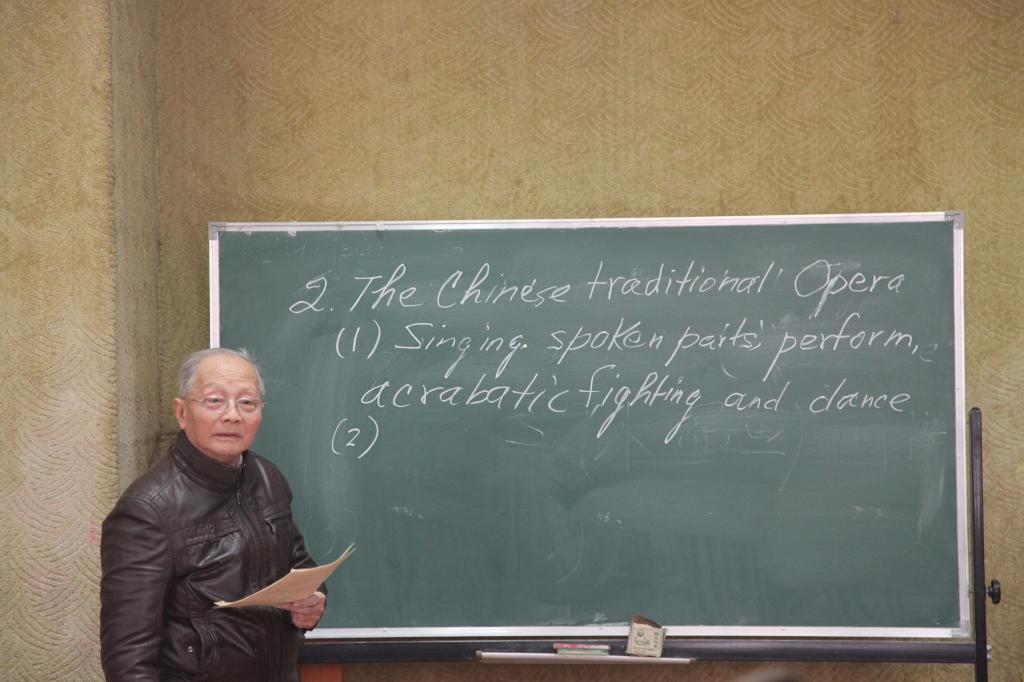 2. The Chinese traditional Opera
(1) Singing. spoken parts, perform,
acrabatic fighting and dance
(2)